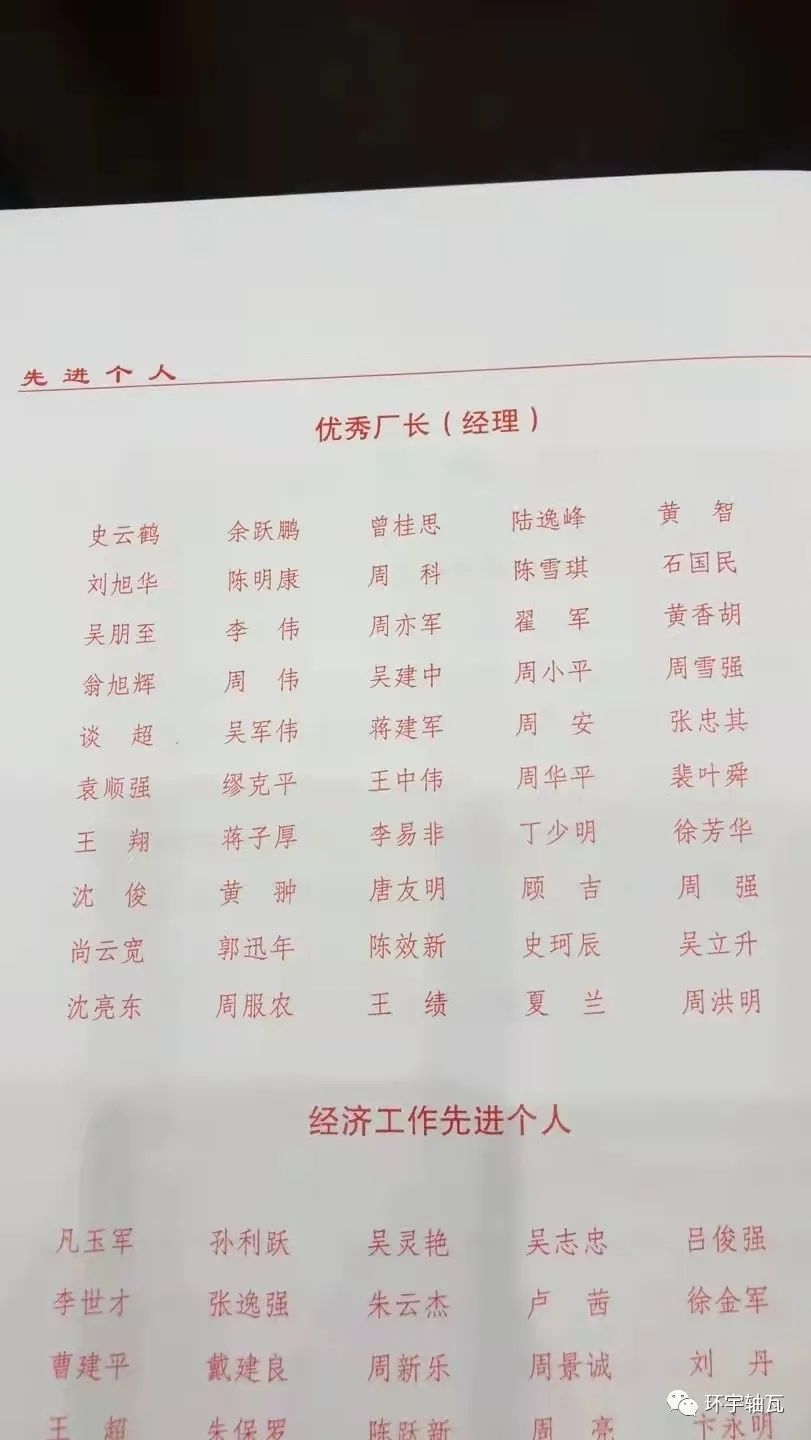 先进个人
优秀厂长（经理）
史云鹤 余跃鹏 曾桂思 陆逸峰 黄 智
刘旭华 陈明康 周 科 陈雪琪 石国民
吴朋至 李 伟 周亦军 翟 军 黄香胡
翁旭辉 周 伟 吴建中 周小平 周雪强
谈 超 吴军伟 蒋建军 周 安 张忠其
袁顺强 缪克平 王中伟 周华平 裴叶舜
王 翔 蒋子厚 李易非 丁少明 徐芳华
沈 俊 黄 翀 唐友明 顾 吉 周 强
尚云宽 郭迅年 陈效新 史珂辰 吴立升
沈亮东 周服农 王 绩 夏 兰 周洪明
经济工作先进个人
凡玉军 孙利跃 吴灵艳 吴志忠 吕俊强
李世才 张逸强 朱云杰 卢 茜 徐金军
曹建平 戴建良 周新乐 周景诚 刘 丹
王 超 朱保罗 陈跃新 周 亮 卞永明
环宇轴瓦